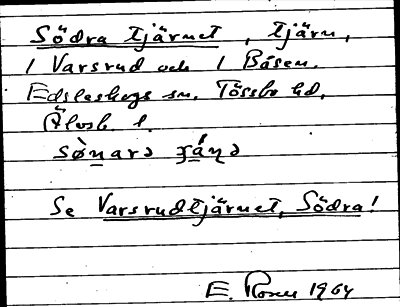 Södra tjärnet, tjärn,
i Varsrud och i Båsen.
Edsleskogs sn. Tössbo hd.
Älvsb. l.
Se Varsrudtjärnet, Södra!
E. Rosen 1964